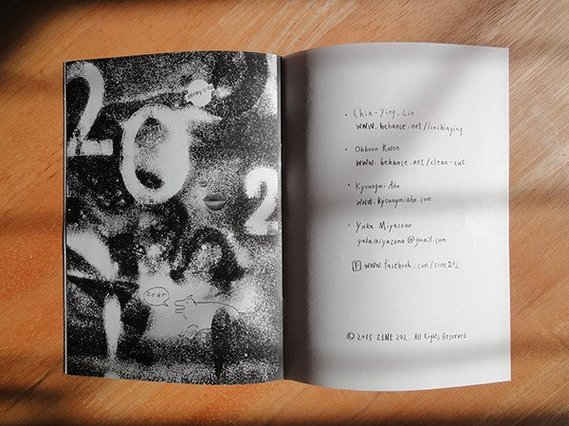 2
0
2
· Chia-Ying. Lin
www. behance.net/linchiaying
· Ohheon Kwon
www. behance.net/clean-cut
· Kyoungmi Ahn
www. kyoungmiahn.com
· Yuka Miyazono
yukamiyazono@gmail.com
f www. facebook. com/zine202
© 2015 ZINE 202. All Rights Reserved